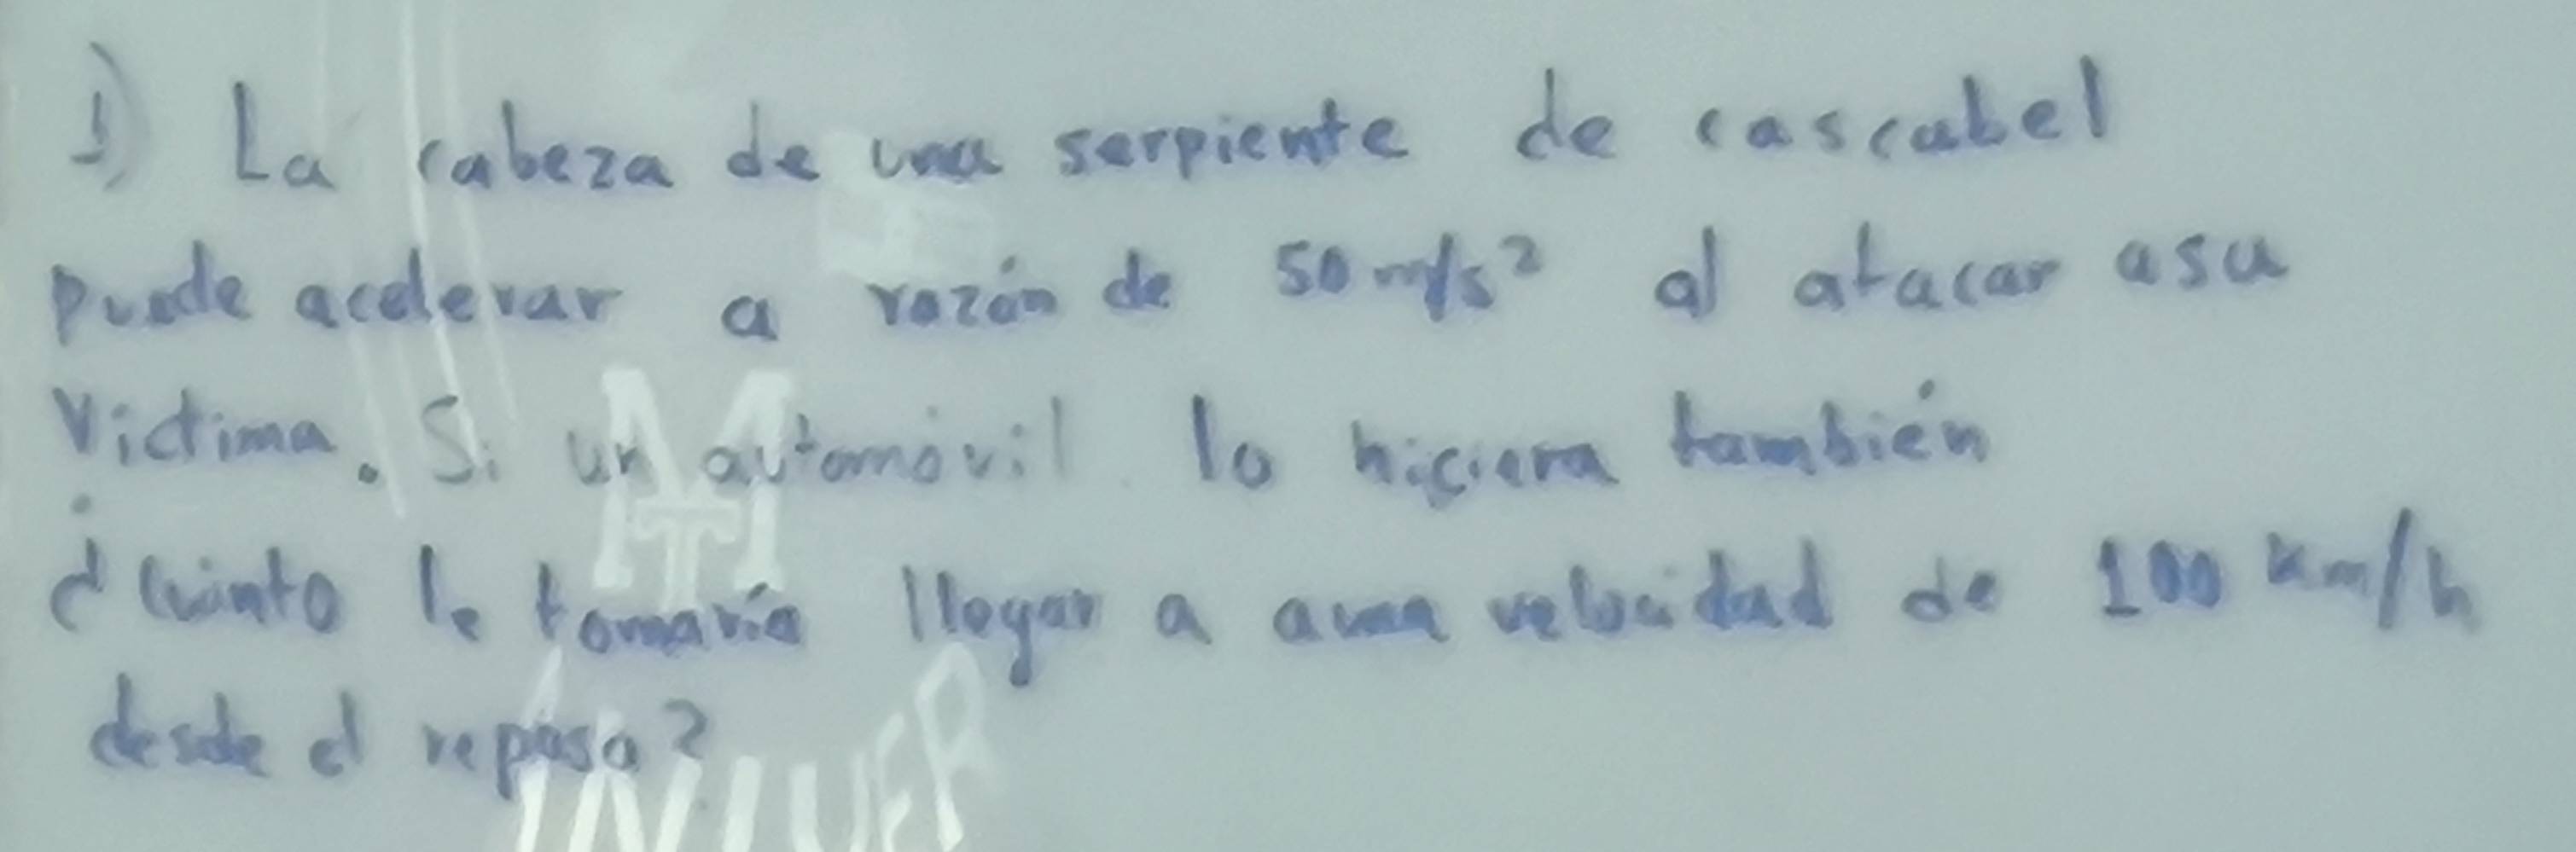 1) La cabeza de una serpiente de cascabel
puede acelerar a razón de 50 m/s² al atacar asu
Victima. Si un automóvil lo hiciera también
¿Cuánto le tomaría llegar a auna velocidad de 100 km/h
desde el reposo?